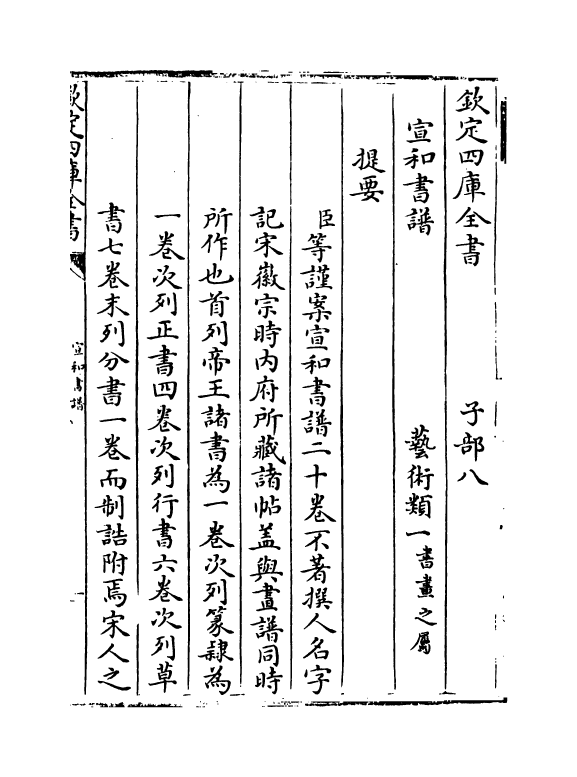 欽定四庫全書　　　子部八
宣和書譜　　　藝術類一書畫之屬
提要
臣等謹案宣和書譜二十卷不著撰人名字
記宋徽宗時内府所藏諸帖盖與畫譜同時
所作也首列帝王諸書為一卷次列篆隷為
一卷次列正書四卷次列行書六卷次列草
書七卷末列分書一卷而制誥附焉宋人之
欽定四庫全書
宣和書譜